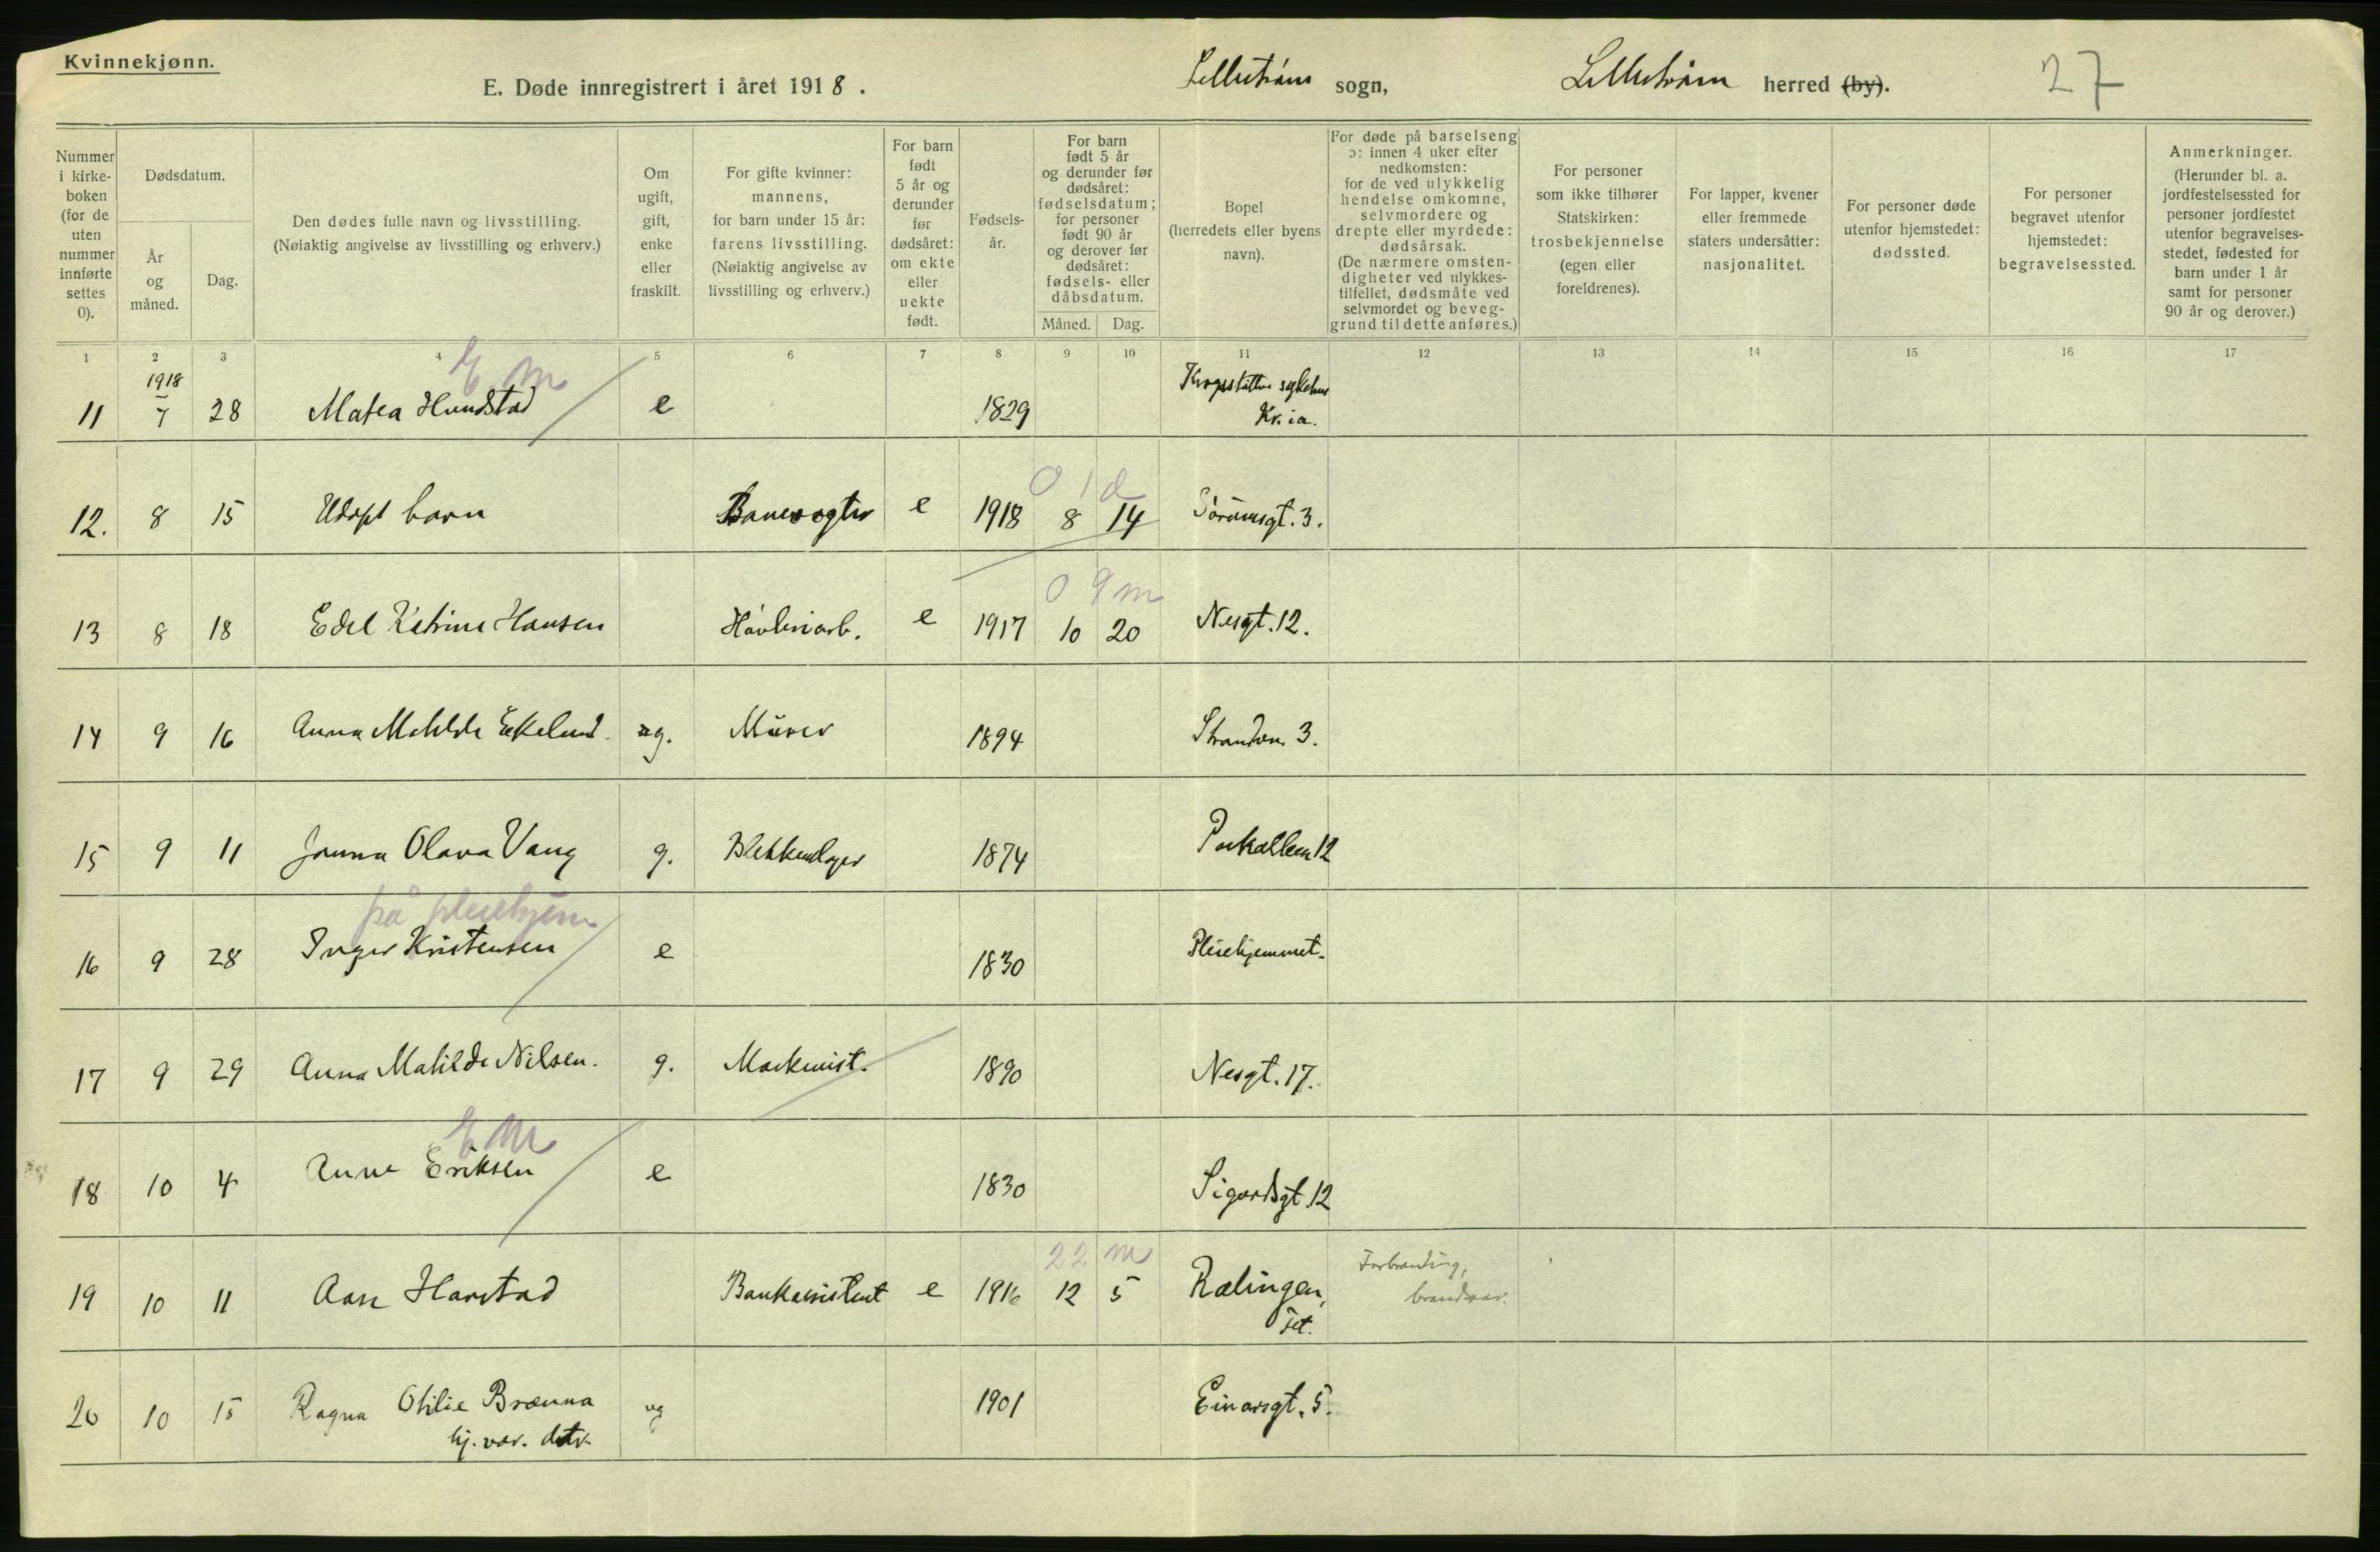 Kvinnekjønn.
E. Døde innregistrert i året 1918. Lillestrøm sogn, Lillestrøm herred (by). 27
Nummer i kirke-boken (for de uten nummer innførte settes 0).
Dødsdatum.
År og måned.
Dag.
Den dødes fulle navn og livsstilling.
(Nøiaktig angivelse av livsstilling og erhverv.)
Om ugift, gift, enke eller fraskilt.
For gifte kvinner: mannens, for barn under 15 år: farens livsstilling. (Nøiaktig angivelse av livsstilling og erhverv.)
For barn født 5 år og derunder før dødsåret: om ekte eller uekte født.
Fødsels-år.
For barn født 5 år og derunder før dødsåret: fødselsdatum; for personer født 90 år og derover før dødsåret: fødsels- eller dåbsdatum.
Måned. Dag.
Bopel (herredets eller byens navn).
For døde på barselseng ɔ: innen 4 uker efter nedkomsten: for de ved ulykkelig hendelse omkomne, selvmordere og drepte eller myrdede: dødsårsak. (De nærmere omsten-digheter ved ulykkes-tilfellet, dødsmåte ved selvmordet og beveg-grund til dette anføres.)
For personer som ikke tilhører Statskirken: trosbekjennelse (egen eller foreldrenes).
For lapper, kvener eller fremmede staters undersåtter: nasjonalitet.
For personer døde utenfor hjemstedet: dødssted.
For personer begravet utenfor hjemstedet: begravelsessted.
Anmerkninger. (Herunder bl. a. jordfestelsessted for personer jordfestet utenfor begravelses-stedet, fødested for barn under 1 år samt for personer 90 år og derover.)
1 2 3 4 5 6 7 8 9 10 11 12 13 14 15 16 17
E m
1918
11 7 28 Matea Hundstad e 1829 Krogsstøtten sykehus
Kr.ia.
0 1 d
12. 8 15 Udøpt barn Banevogter e 1918 8 14 Sørumsgt. 3.
0 9 m
13 8 18 Edel Katrine Hansen Høvleriarb. e 1917 10 20 Nesgt. 12.
14 9 16 Anna Mathilde Ekelund g. Murer 1894 Strandvn. 3.
15 9 11 Janna Olava Vang g. Blikkenslager 1874 Parkalleen 12
på pleiehjem
16 9 28 Inger Kristensen e 1830 Pleiehjemmet.
17 9 29 Anna Matilde Nilsen. g. Maskinist. 1890 Nesgt. 17.
E m
18 10 4 Anne Eriksen e 1830 Sigurdsgt. 12
22 m
19 10 11 Aase Harstad Bankassistent e 1916 12 5 Rælingen, Forbrænding,
brandsaar.
20 10 15 Ragna Othilie Brænna ug 1901 Einarsgt. 5.
hj. vær. datr.